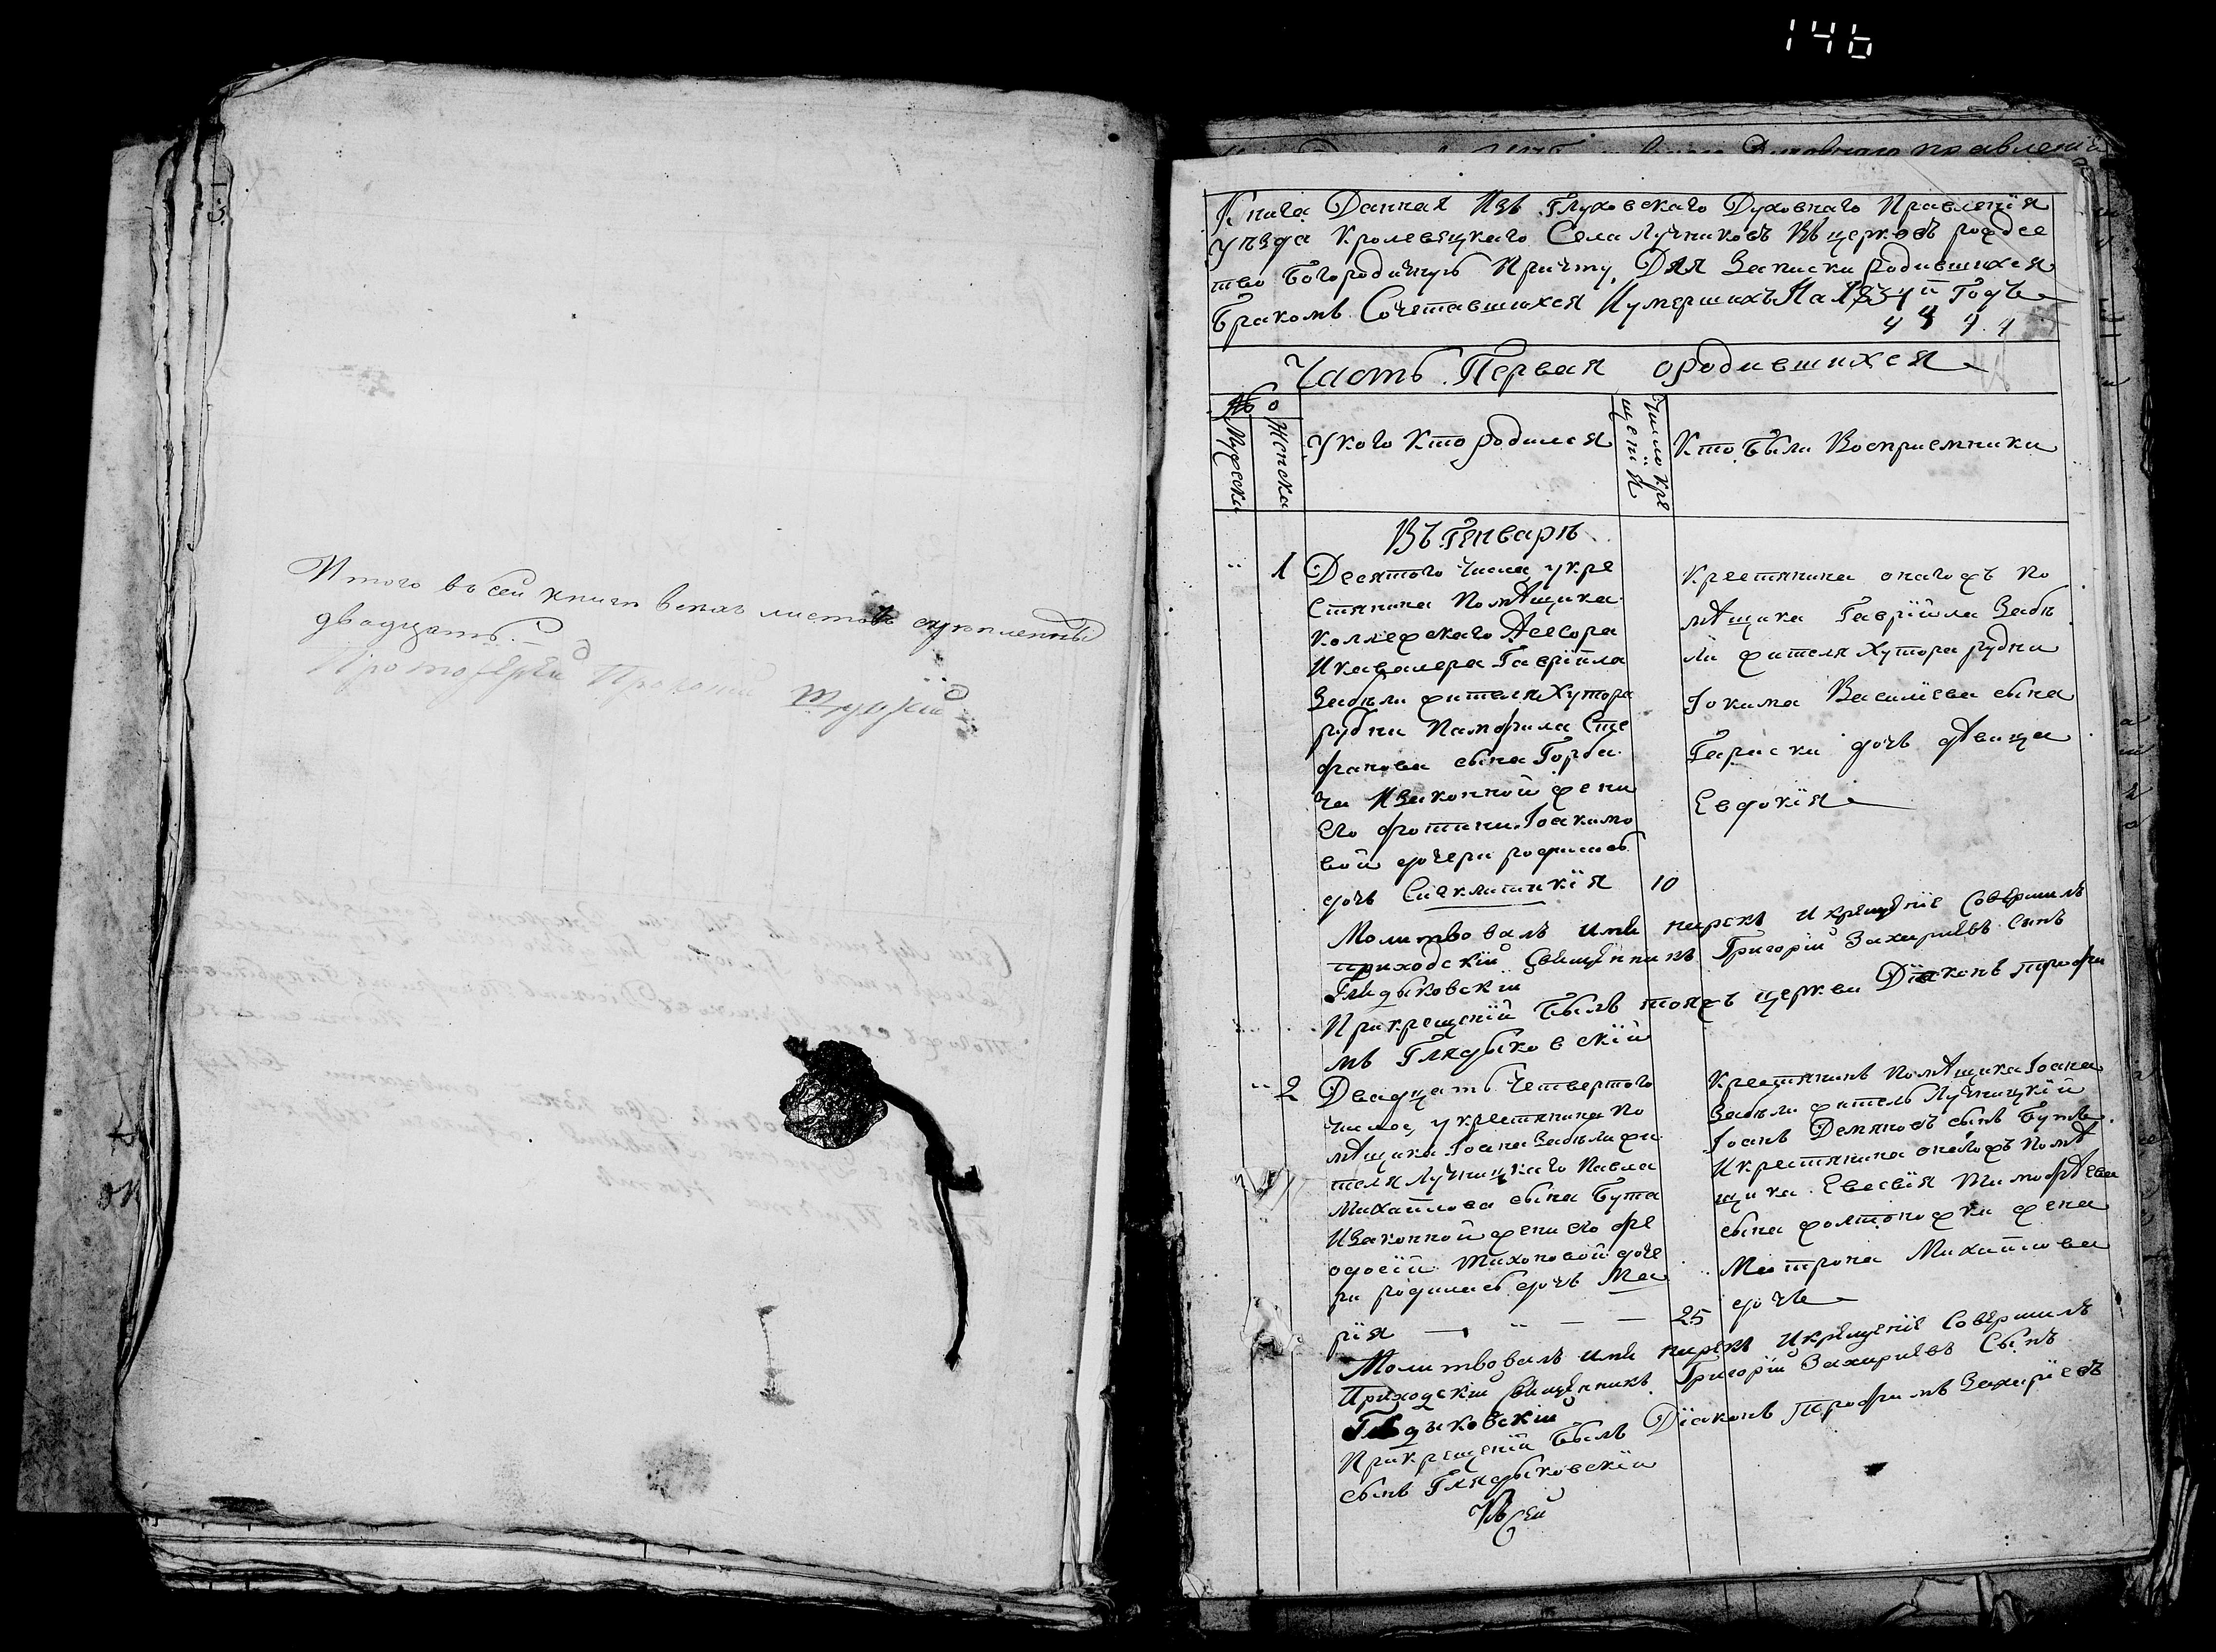 146
Итого въ сей книги всехъ листовъ скрепленны
двадцать.
Протоіерей Прокопій
Книга Данная Изъ Глуховскаго Духовнаго Правленїя
уѣзда Кролевецкаго Села Лучниковъ Въ церковъ рождес
тво Богородичную Причту, Для Записки Родившихся
Бракомъ Сочетавшихся Иумершихъ На 1834й Годъ
Часть Первая ородившихся
Мужеска
Женска
Укого Кто родился
Число кре
щенїя
Кто были Восприемники
Въ Генварѣ
1 Десятого числа, укре
стянина Помѣщика
Коллежскаго Асесора
Икавалера Гаврїила
Забѣли жителя Хутора
рудни Памфила Сте
фанова сына Горба
ча Изаконной жени
его фотини Іоакимо
вой дочери родилась
дочь Сикклитикїя 10
Крестянина онагожъ По
мѣщика Гаврїила Забѣ
ли жителя Хутора рудни
Іокима Василїева сына
Гараски дочь дѣвица
Евдокїя
Молитвовалъ имя нарекъ икрещенїе Совершилъ
приходскїй Священникъ Григорїй Захарїевъ сынъ
Глядыковскїй
Прикрещенїй былъ тояжъ церкви Дїяконъ трофи
мъ Глядыковскїй
2 Двадцать Четвертого
числа, укрестянина По
мѣщика Іоана Забѣли жи
теля Лучницкаго Павла
Михайлова сына Бута
Изаконной жени его фе
одосїй Тихоновой доче
ри родилась дочь Ма
рїя 25
Крестянинъ Помѣщика Іоана
Забѣли житель Лучницкїй
Іоанъ Демяновъ сынъ Бутъ
Икрестянина онагожъ Помѣ
щика Евсевїя Тимофѣева
сына жена
Матрона Михайлова
дочь
Молитвовалъ имя нарекъ Икрещенїе Совершилъ
Приходскїй Священникъ Григорїй Захарїевъ Сынъ
Глядыковскїй
Прикрещенїй былъ Дїаконъ Трофимъ Захарїевъ
сынъ Глядыковскїй